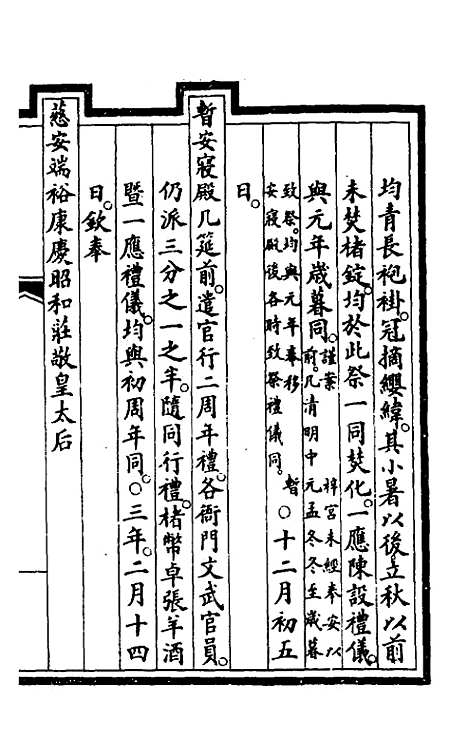 均青長袍褂。冠摘纓緯。其小暑以後。立秋以前
未焚楮錠。均於此祭一同焚化。一應陳設禮儀。
與元年歲暮同。謹案　梓宮未經奉安以
前。凡清明中元孟冬冬至歲暮
致祭。均與元年奉移　暫
安寢殿後各時致祭禮儀同。○十二月初五
日。
暫安寢殿几筵前。遣官行二周年禮。各衙門文武官員。
仍派三分之一之半。隨同行禮。楮幣卓張羊酒
暨一應禮儀。均與初周年同。○三年。二月十四
日。欽奉
慈安端裕康慶昭和莊敬皇太后